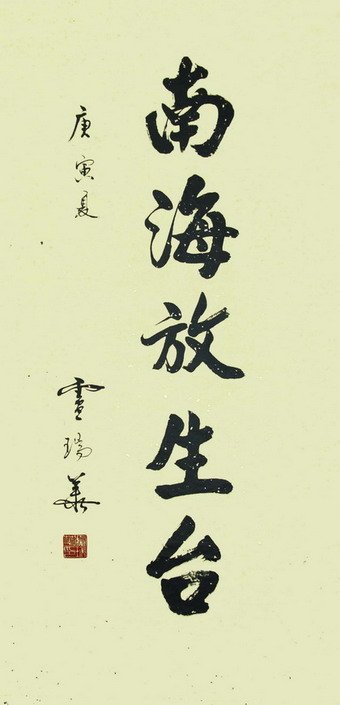 南海放生台
庚寅夏
瑞華